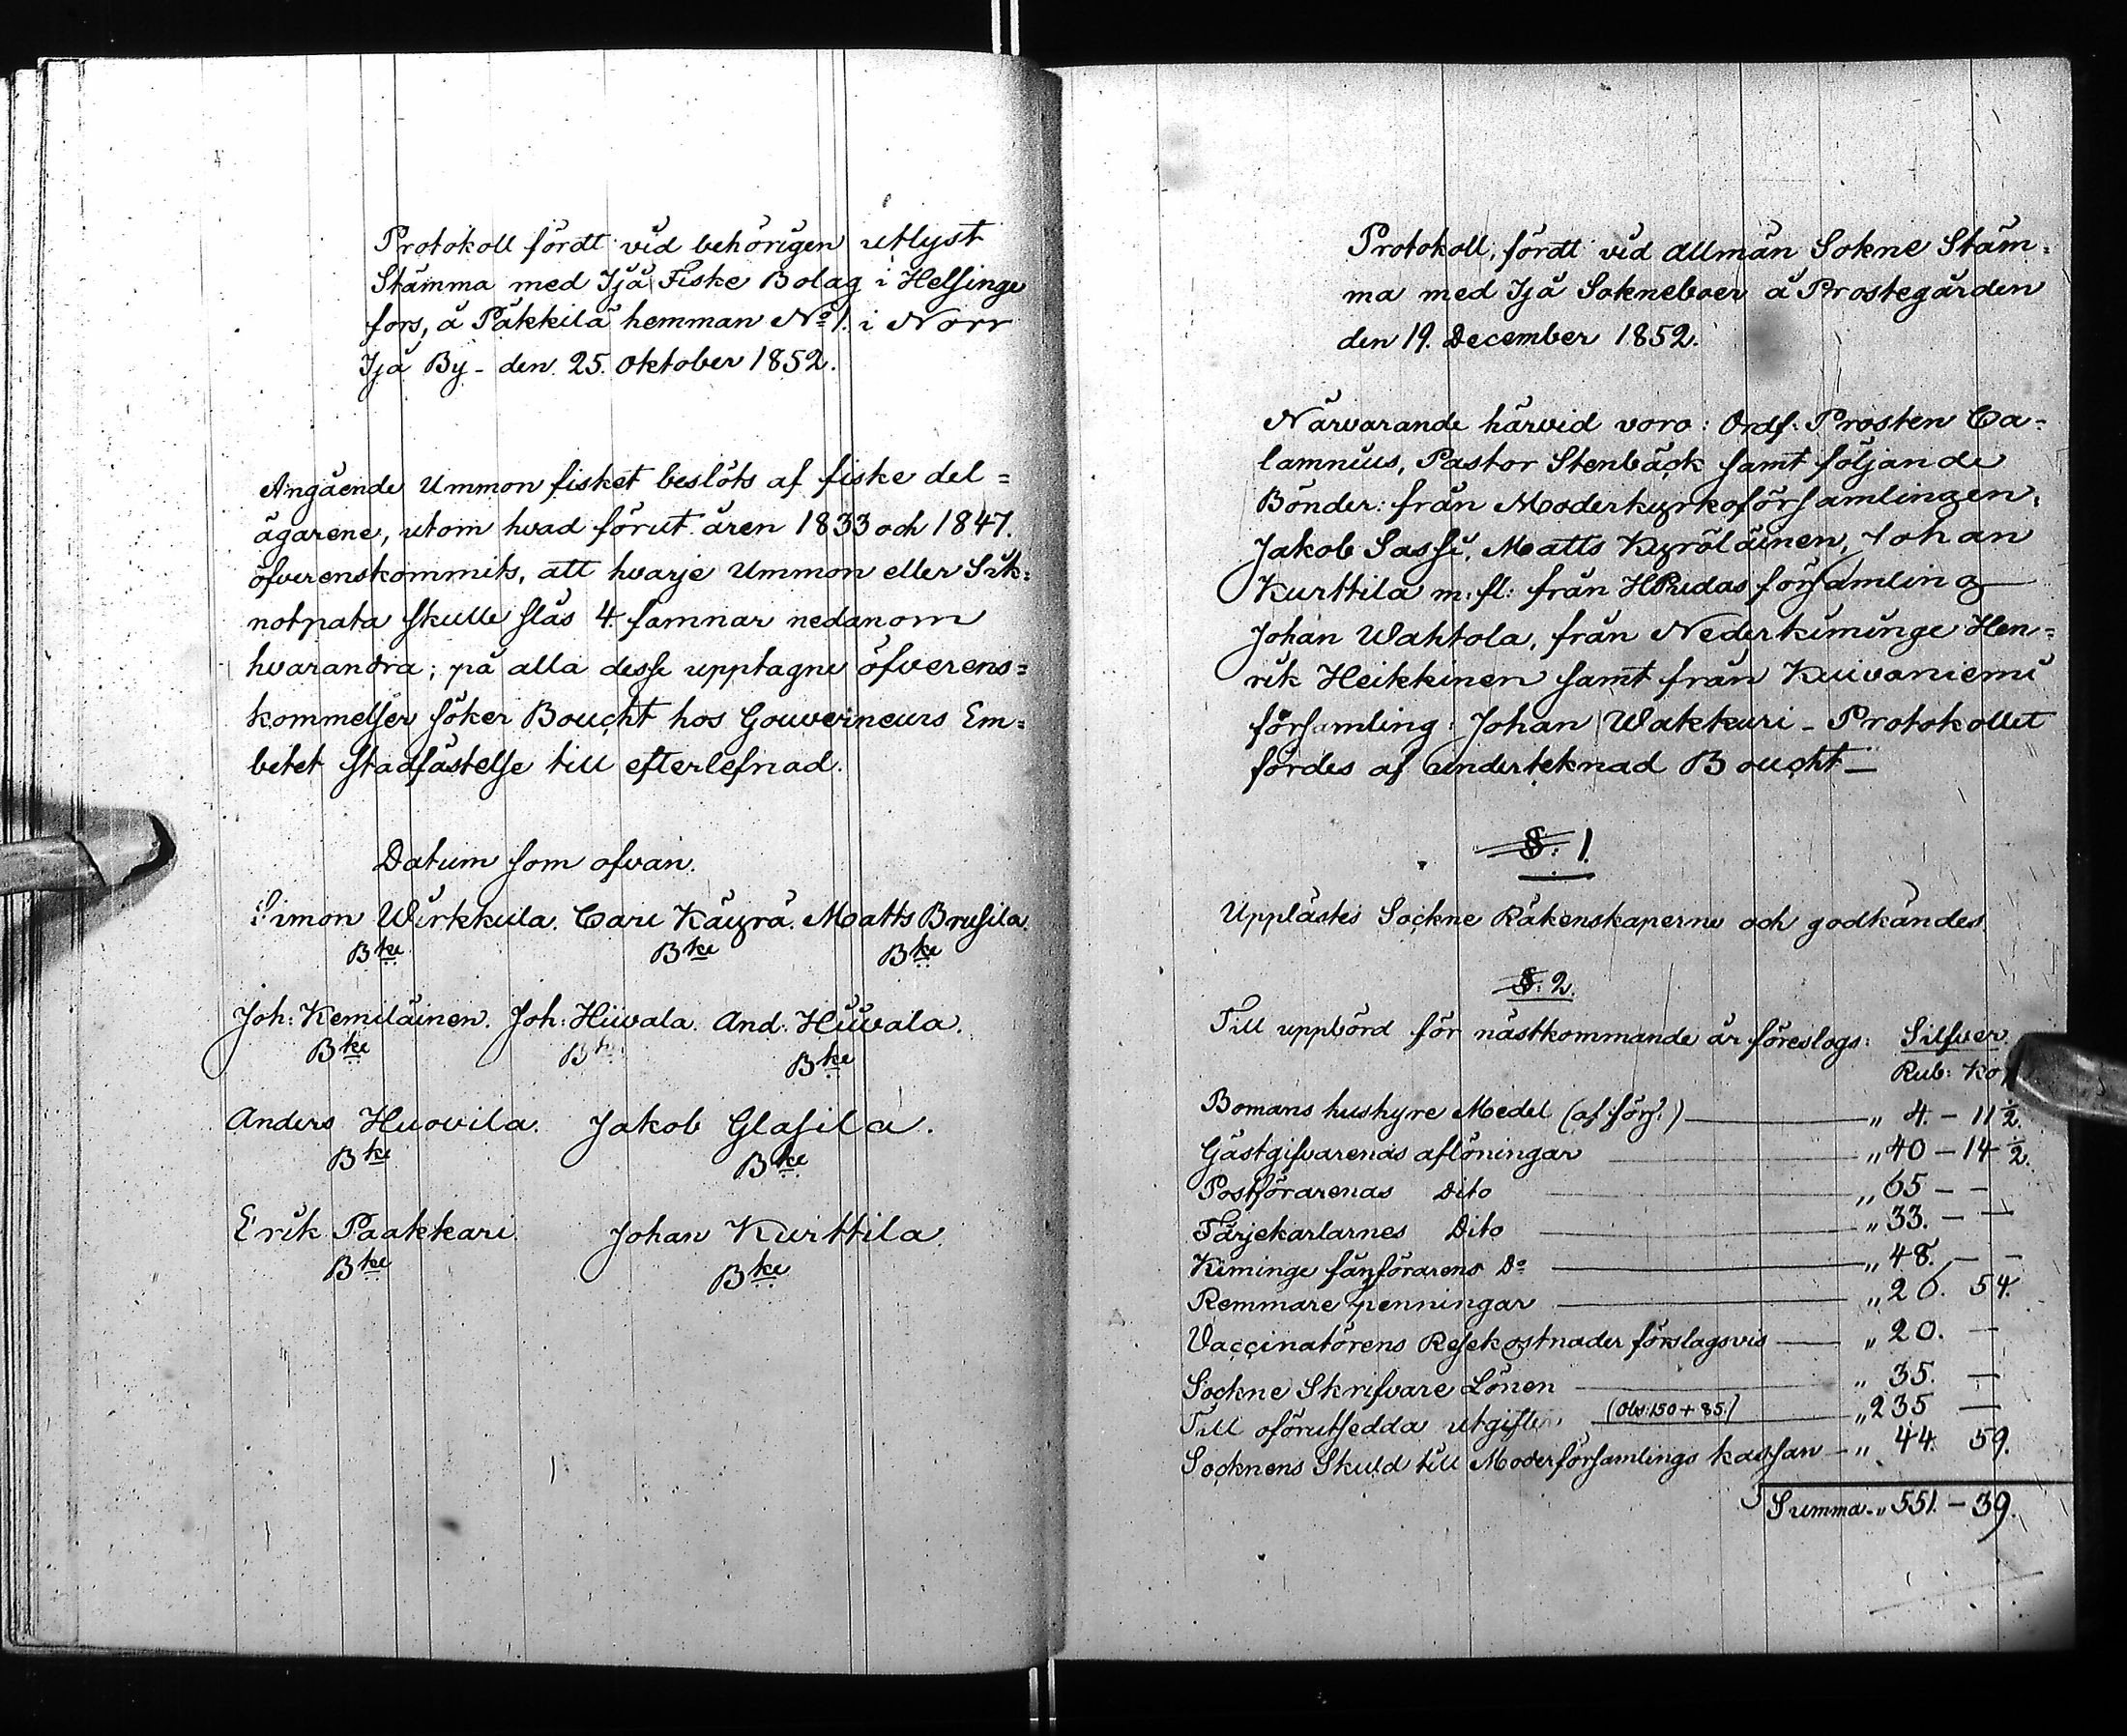 Protokoll fördt vid behörigen utlyst
Stämma med Ijå Fiske Bolag i Helsinge
fors, å Päkkilä hemman No 1. i Norr
Ijå By - den 25. Oktober 1852.
Angående Ummon fisket beslöts af fiske del=
ägarene, utom hvad förut åren 1833 och 1847.
öfverenskommits, att hvarje Ummon eller Sik=
notpata skulle slås 4. famnar nedanom
hvarandra; på alla desse upptagne öfverens=
kommelser söker Boucht hos Gouverneurs Em=
betet stadfästelse till efterlefnad.
Datum som ofvan.
Simon Wirkkula. Carl Käyrä. Matts Brusila.
Bke Bke Bke
Joh: Kemiläinen. Joh: Hiivala. And: Hiivala.
Bke Bke Bke
Anders Huovila. Jakob Glasila.
Bke Bke
Erik Paakkari. Johan Kurttila.
Bke Bke
Protokoll, fördt vid allmän Sokne Stäm=
ma med Ijå Sokneboer å Prostegården
den 19. December 1852.
Närvarande härvid voro: Ordf: Prosten Ca=
lamnius, Pastor Stenbäck samt följande
Bönder: från Moderkyrkoförsamlingen,
Jakob Sassi, Matts Kyröläinen, Johan
Kurttila m: fl: från HPudas församling
Johan Wahtola, från Nederkiminge Hen=
rik Heikkinen samt från Kuivaniemi
församling: Johan Wakkuri - Protokollet
fördes af undertecknad Boucht —
§: 1.
Upplästes Sockne Räkenskaperne och godkändes
§: 2.
Till uppbörd för nästkommande år föreslogs: Silfver.
Rub: Kop
Bomans hushyre Medel (af förs:) — „ 4. - 11 1/2.
Gästgifvarenas aflöningar — „ 40 - 14 1/2.
Postförarenas Dito — „ 65 - -
Färjekarlarnes Dito — „ 33. - -
Kiminge fånförarens Do — „ 48. - -
Remmare penningar — „ 26. 54.
Vaccinatörens Resekostnader förslagsvis — „ 20. -
Sockne Skrifvare Lönen — „ 35. -
Till oförutsedda utgifter, (Obs: 150 + 85.) — „ 235 -
Socknens Skuld till Moderförsamlings kassan — „ 44. 59.
Summa „ 551. - 39.